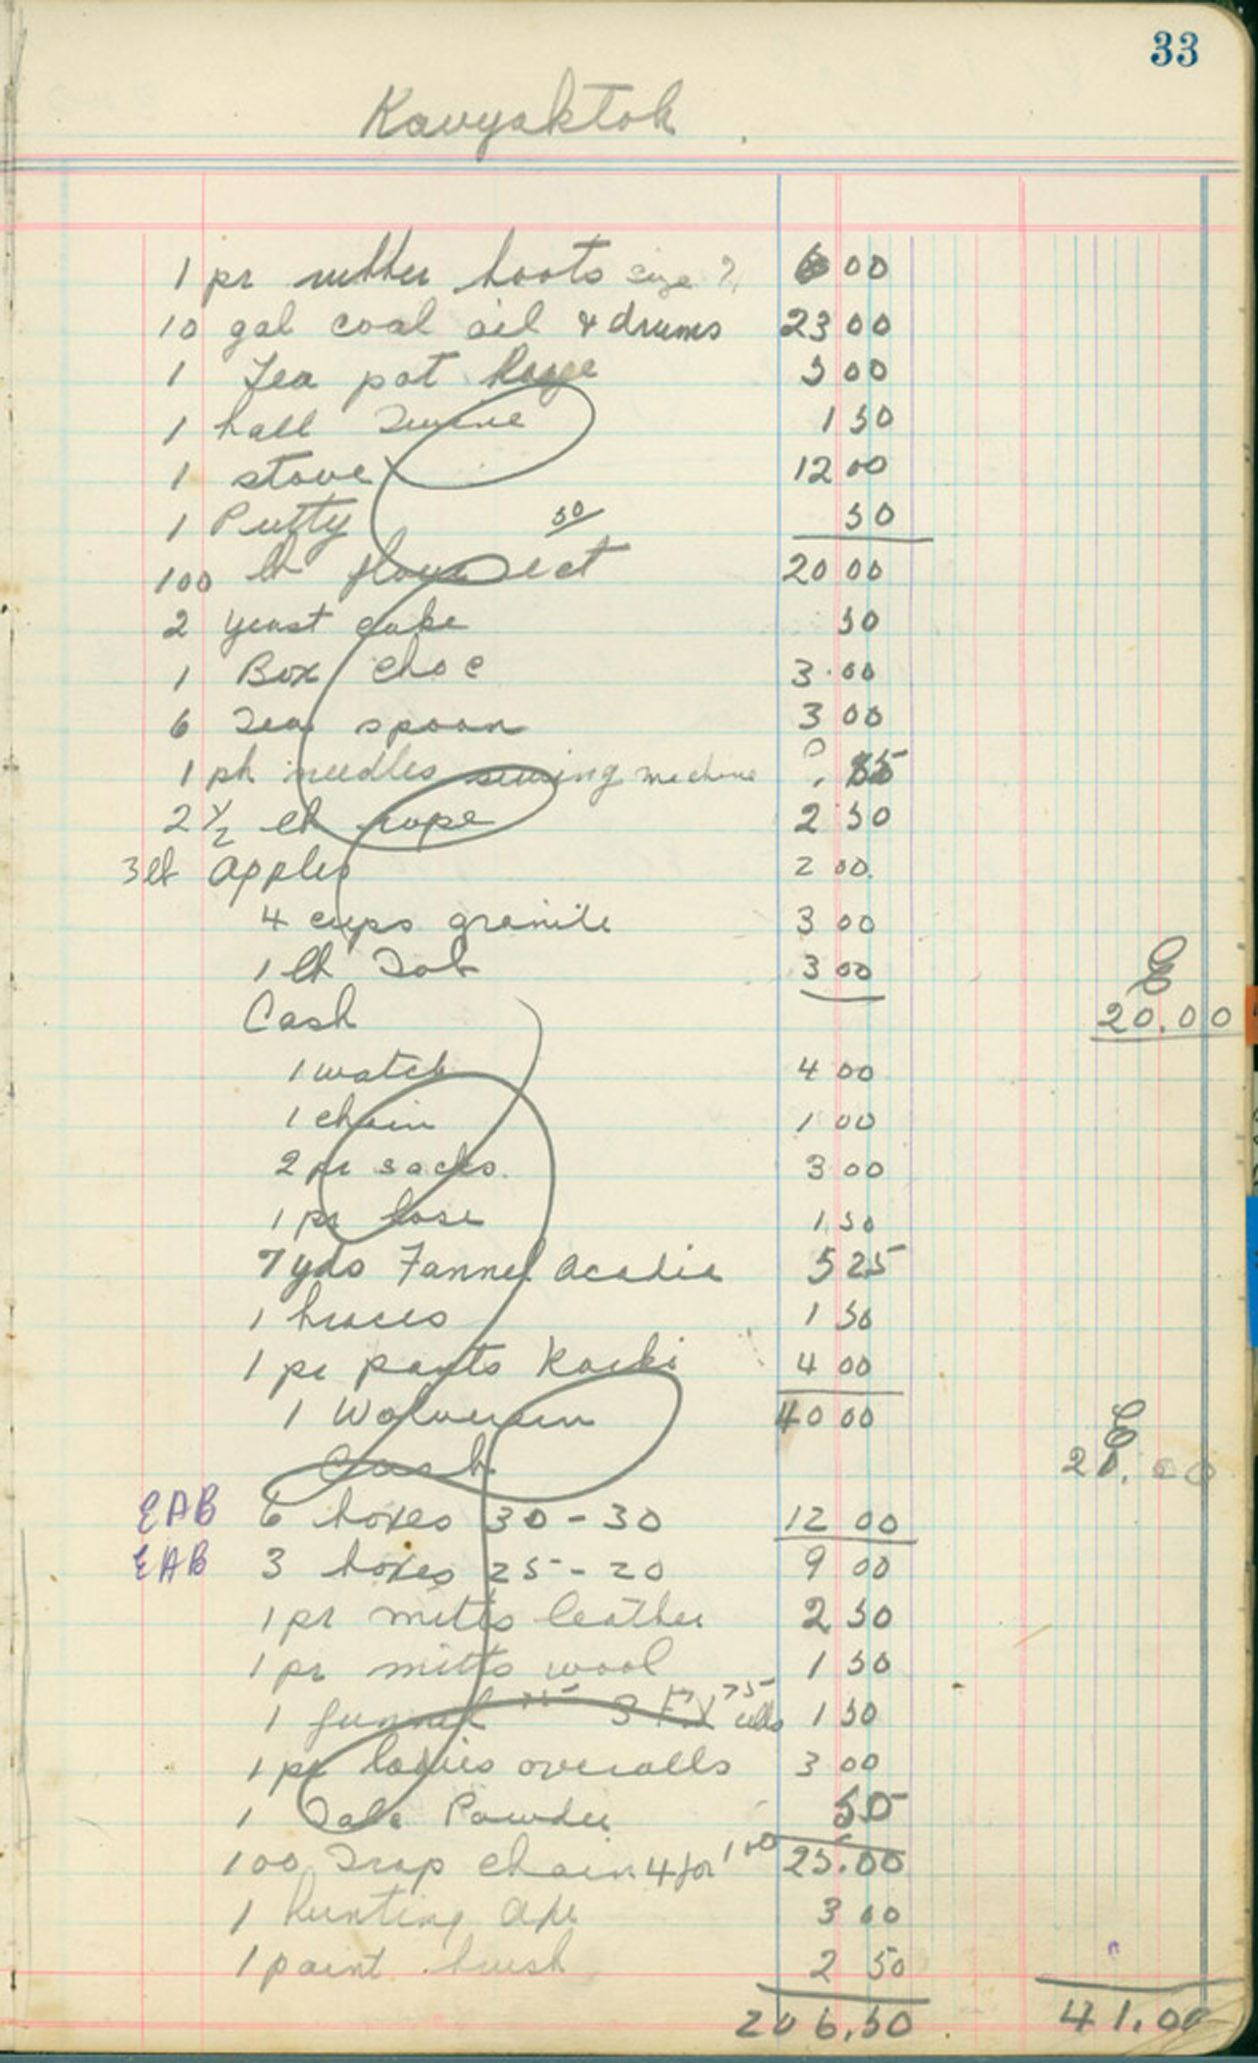 33
Kavyaktok
1 pr rubber boots size 7 6 00
10 gal coal oil & drums 23 00
1 Tea pot large 5 00
1 ball Twine 1 50
1 stove 12 00
1 Putty 50
50
100 lb flour 20 00
2 yeast cake 50
1 Box choc 3.00
6 Tea spoon 3 00
1 pk needles sewing machine
2 1/2 lb rope 2 50
3 lb Apples 2 00.
4 cups granite 3 00
1 lb Tob 3 00
E
Cash 20.00
1 watch 4 00
1 chain 1 00
2 pr socks. 3 00
1 pr hose 1.50
7 yds Fannel Acadie 5 25
1 braces 1 50
1 pr pants Kacki 4 00
1 Wolverein 40 00
E
Cash
EAB 6 boxes 30-30 12 00
EAB 3 boxes 25-20 9 00
1 pr mitts leather 2 50
1 pr mitts wool 1 50
1 funnel 75 3 75 1 50
1 pr ladies overalls 3 00
1 Talc Powder 50
100 Trap chain 4 for 1 00 25.00
1 hunting axe 3 00
1 paint brush 2 50
206.50 41.00